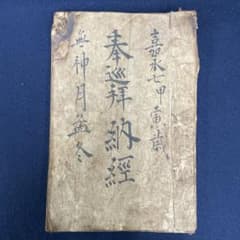 嘉永七甲寅歳
奉巡拜納經
無神月孟冬